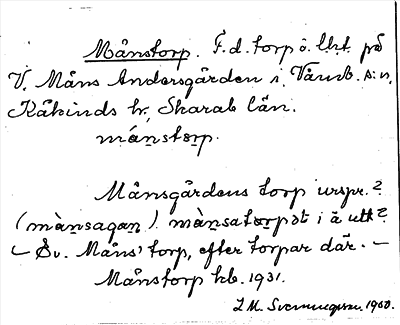 Månstorp. F.d. torp o. lht på
V. Måns Andersgården i Våmb. sn,
Kåkinds hr, Skarab. län.
mánstɷrp.
Månsgårdens torp urspr.?
(mànsagaṇ). mànsatɷrpət i ä utt?
– Sv. Måns' torp, efter torpar där. –
Månstorp kb. 1931.
L.M. Svenungsson. 1950.